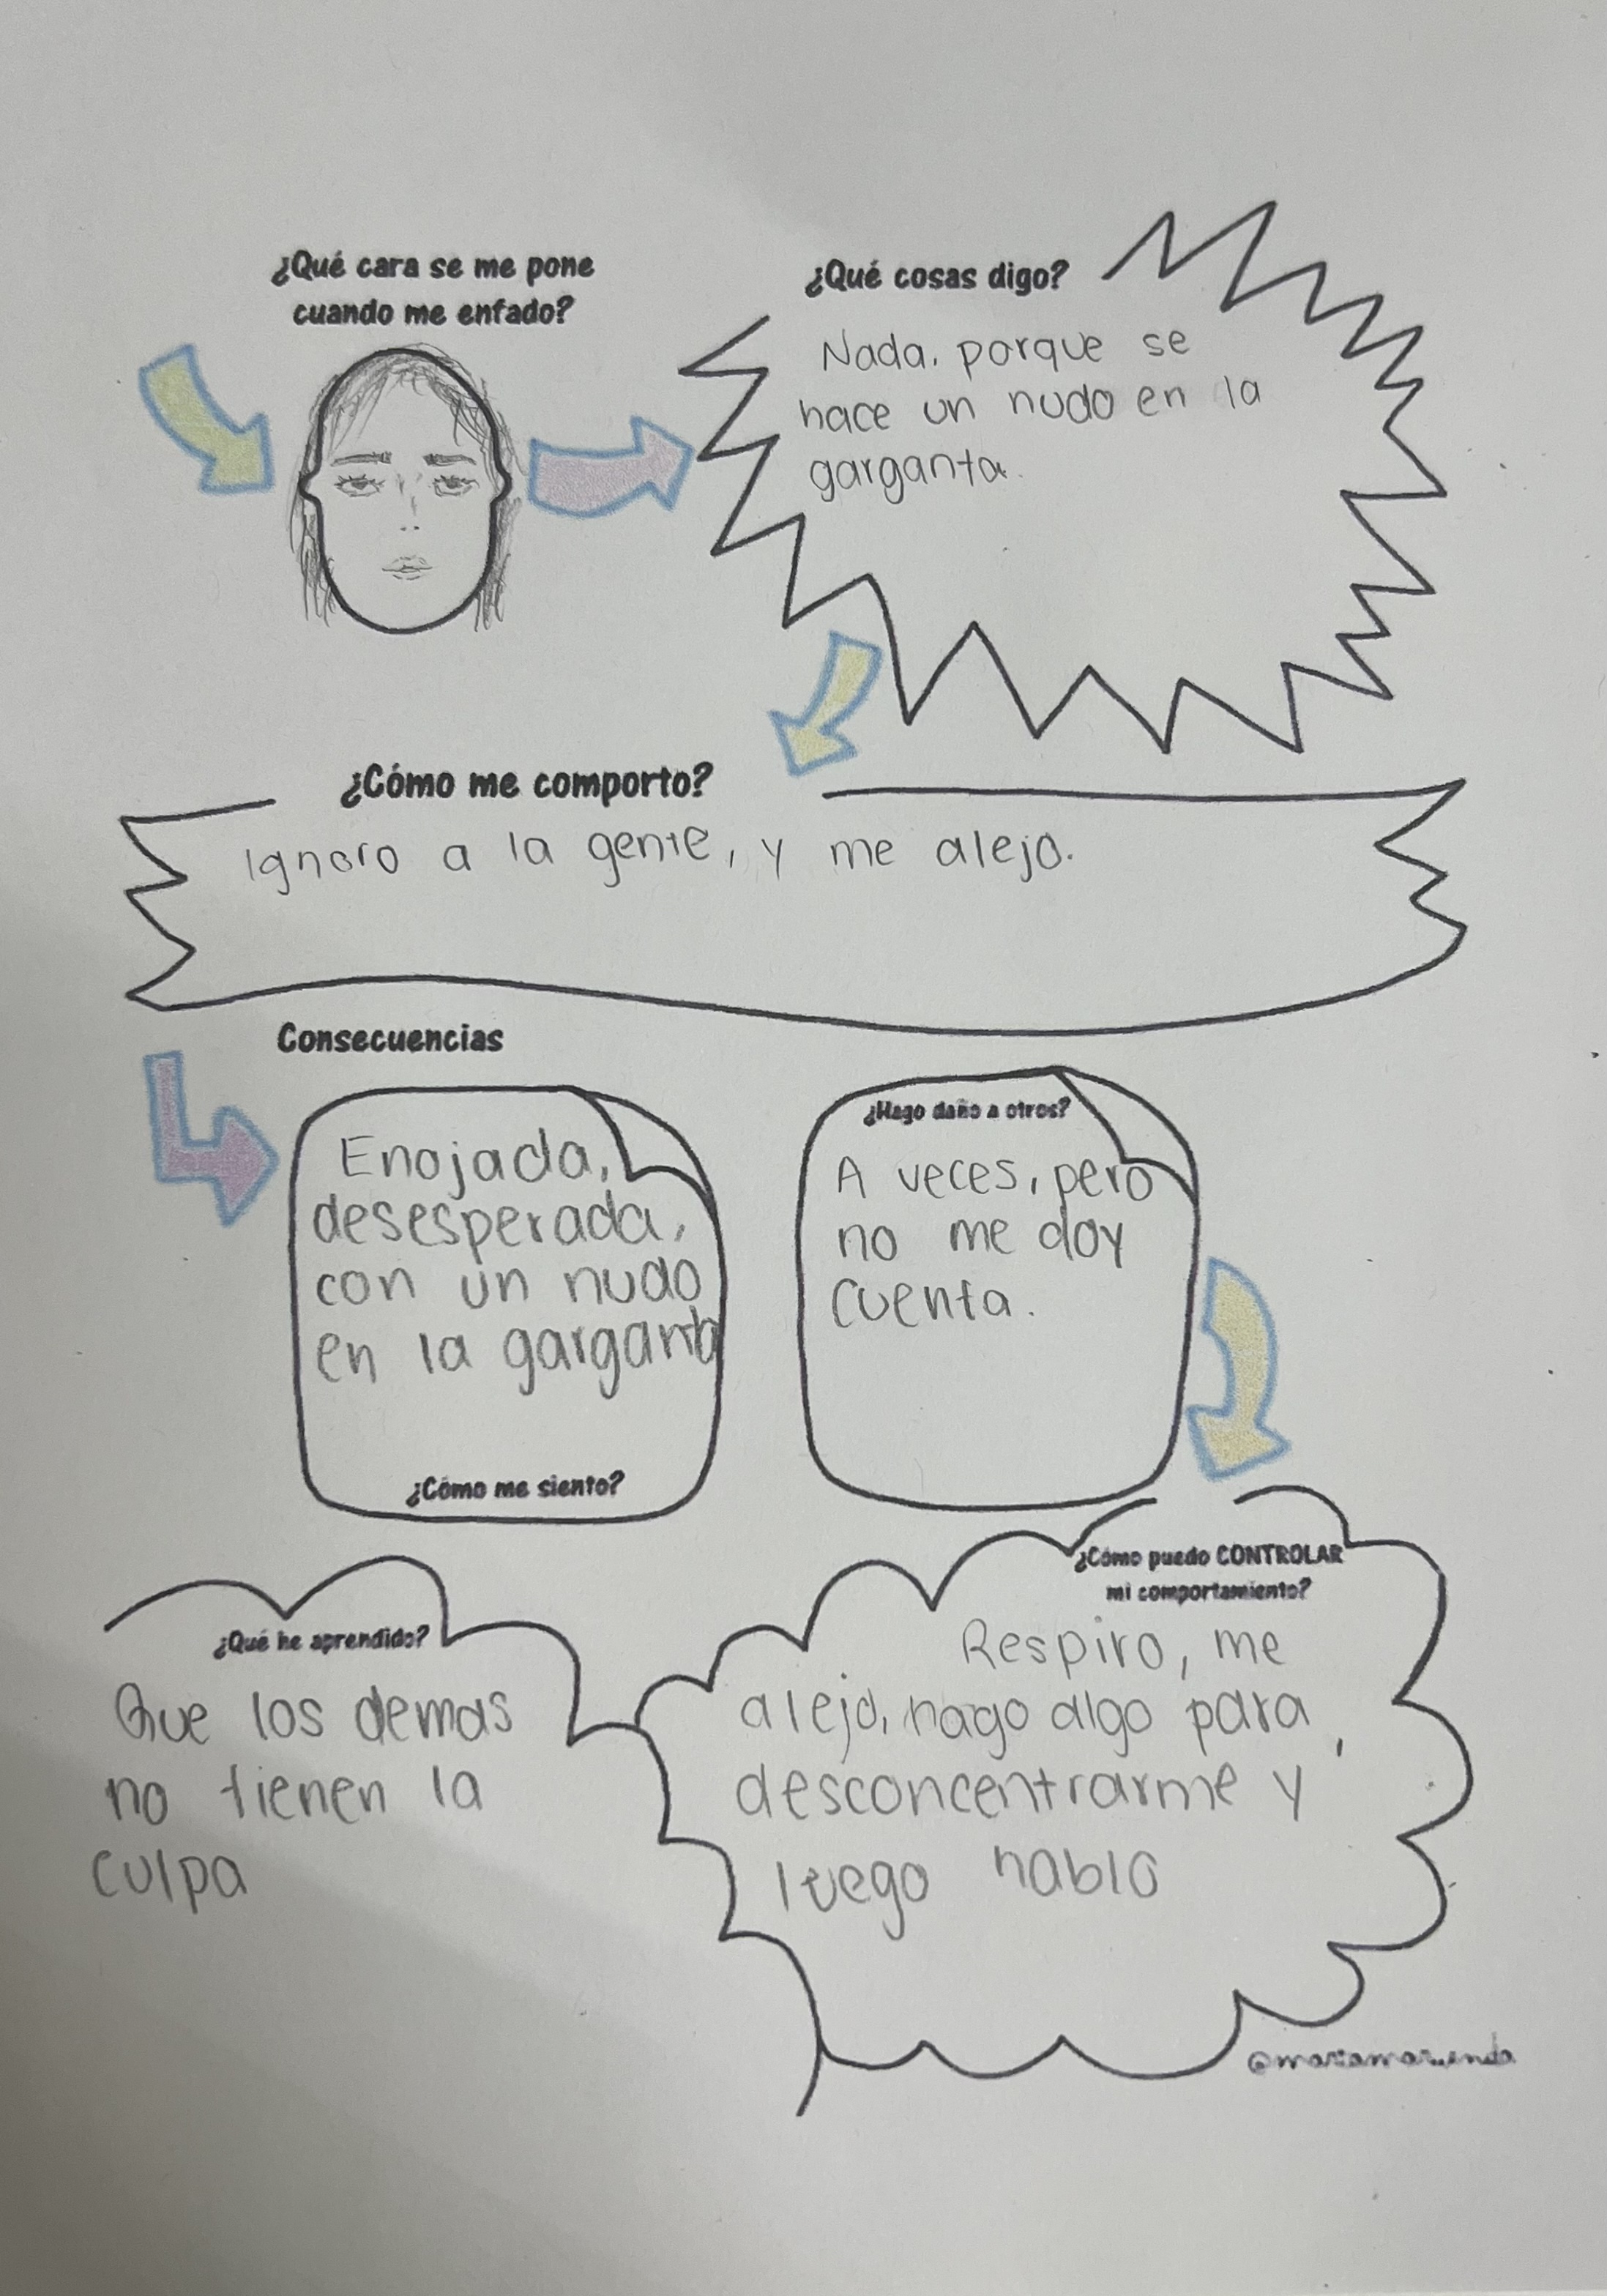 ¿Qué cara se me pone
cuando me enfado?
¿Qué cosas digo?
Nada, porque se
hace un nudo en la
garganta.
¿Cómo me comporto?
Ignoro a la gente, y me alejo.
Consecuencias
Enojada,
desesperada,
con un nudo
en la garganta
¿Cómo me siento?
¿Hago daño a otros?
A veces, pero
no me doy
cuenta.
¿Cómo puedo CONTROLAR
mi comportamiento?
Respiro, me
alejo, hago algo para
desconcentrarme y
luego hablo
¿Qué he aprendido?
Que los demas
no tienen la
culpa